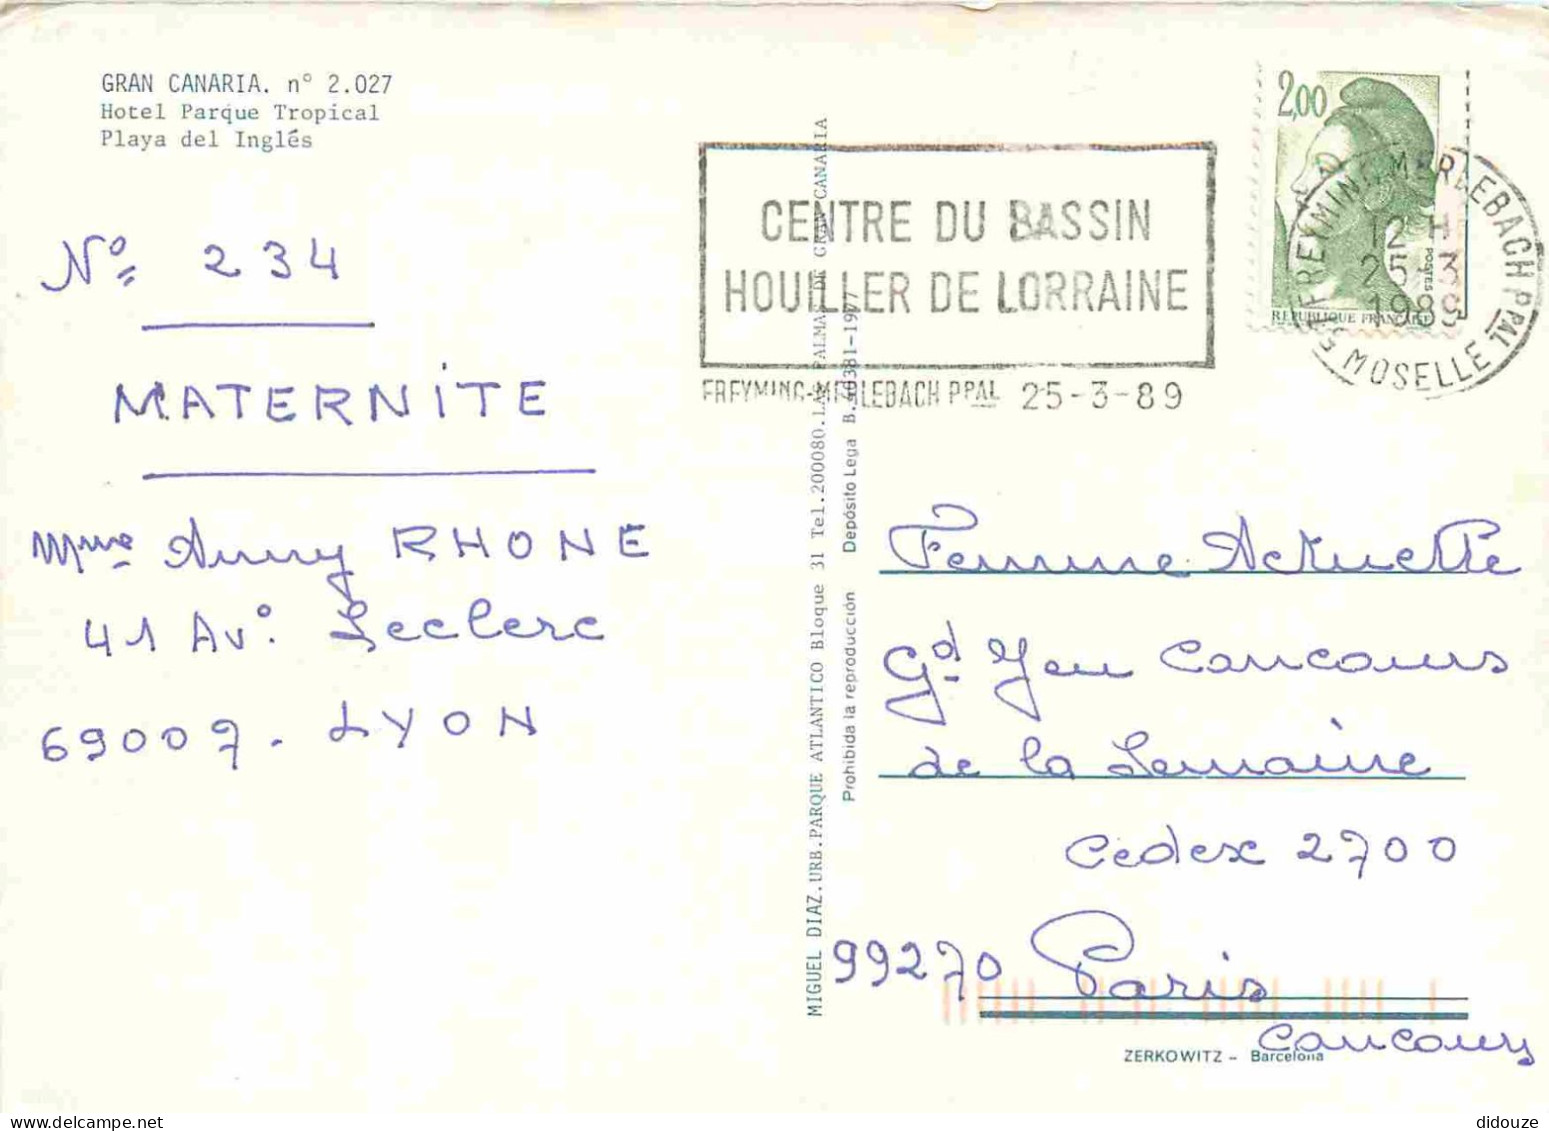 GRAN CANARIA. n° 2.027
Hotel Parque Tropical
Playa del Inglés
N° 234
MATERNITE
Mme Anny RHONE
41 Av. Leclerc
69007 - LYON
CENTRE DU BASSIN
HOUILLER DE LORRAINE
FREYMING-MERLEBACH PPAL 25-3-89
2,00
POSTES
REPUBLIQUE FRANCAISE
57 FREYMING MERLEBACH PPAL
12 H
25-3
1989
MOSELLE
MIGUEL DIAZ.URB.PARQUE ATLANTICO Bloque 31 Tel.200080.LAS PALMAS DE GRAN CANARIA
Prohibida la reproducción Depósito Lega B.40381-1977
Femme Actuelle
Gd Jeu Concours
de la Semaine
Cedex 2700
99270 Paris
Concours
ZERKOWITZ - Barcelona
didouze